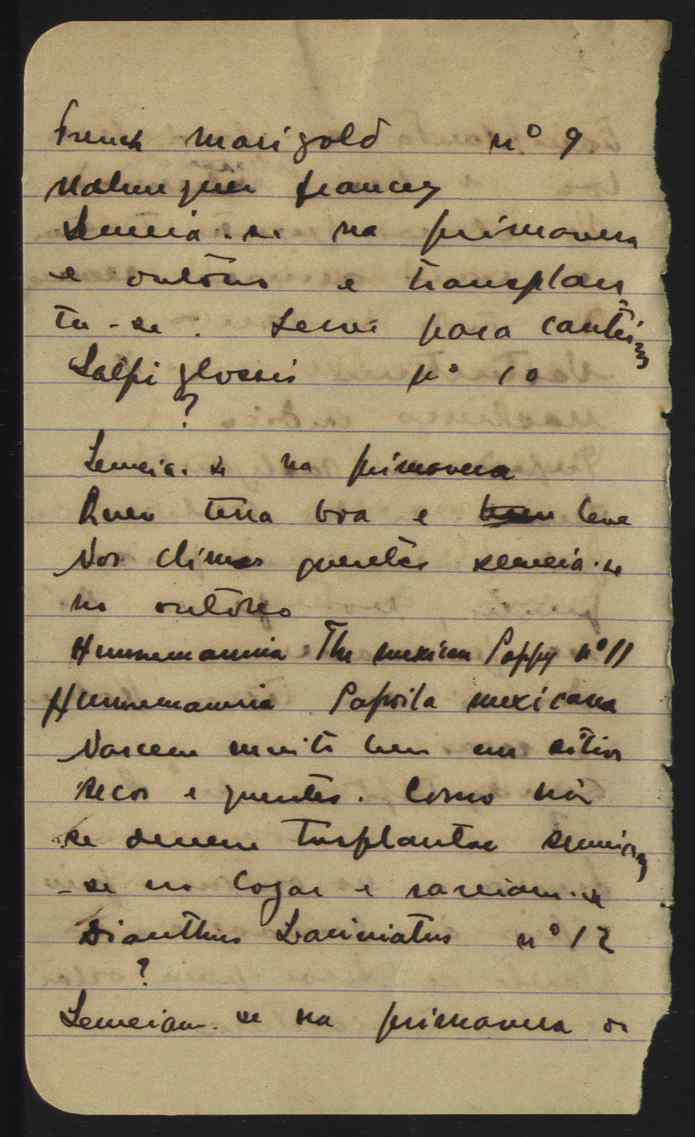 French Marigold nº 9
Malmequer francez
Semeia-se na primavera
e outôno e transplan
ta-se. Serve para cantei
ros
Salpiglossis nº 10
?
Semeia-se na primavera
Quer terra boa e leve
Nos climas quentes semeia-se
no outôno
Hunnemannia The mexican Poppy nº 11
Hunnemannia Papoila mexicana
Nascem muito bem em sitios
secos e quentes. Como não
se devem trasplantar semeiam
-se no logar e rareiam-se
Dianthus Laciniatus nº 12
?
Semeiam-se na primavera ou